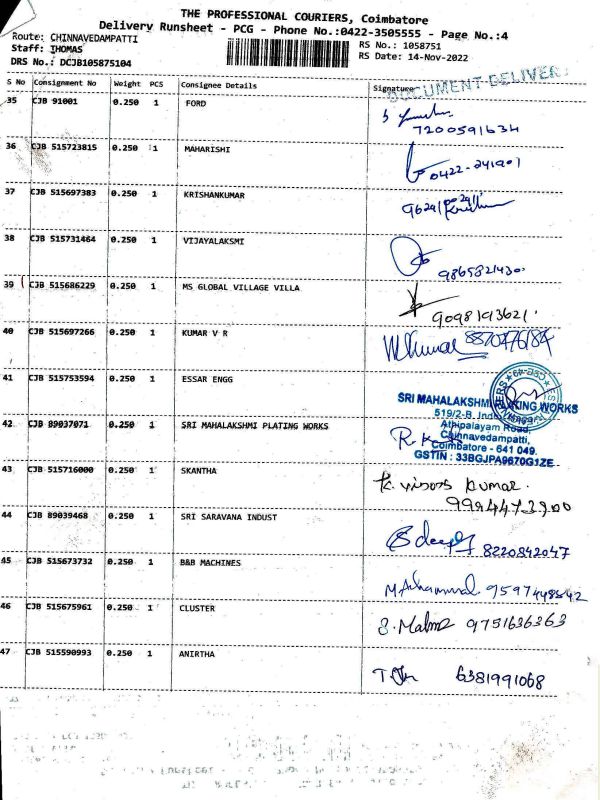 THE PROFESSIONAL COURIERS, Coimbatore
Delivery Runsheet - PCG - Phone No.:0422-3505555 - Page No.:4
Route: CHINNAVEDAMPATTI
RS No.: 1058751
Staff: THOMAS
RS Date: 14-Nov-2022
DRS No.: DCJB105875104
S No Consignment No Weight PCS Consignee Details Signature
DOCUMENT DELIVERY
35 CJB 91001 0.250 1 FORD
7200591634
36 CJB 515723815 0.250 1 MAHARISHI
0422-241901
37 CJB 515697383 0.250 1 KRISHANKUMAR
38 CJB 515731464 0.250 1 VIJAYALAKSMI
9865821430
39 CJB 515686229 0.250 1 MS GLOBAL VILLAGE VILLA
9098193621
40 CJB 515697266 0.250 1 KUMAR V R
8870476184
41 CJB 515753594 0.250 1 ESSAR ENGG
42 CJB 89037071 0.250 1 SRI MAHALAKSHMI PLATING WORKS
SRI MAHALAKSHMI PLATING WORKS
519/2-B,
Athipalayam Road,
Chinnavedampatti,
Coimbatore - 641 049.
GSTIN : 33BGJPA9670G1ZE
43 CJB 515716000 0.250 1 SKANTHA
Kumar
44 CJB 89039468 0.250 1 SRI SARAVANA INDUST
8220842047
45 CJB 515673732 0.250 1 B&B MACHINES
46 CJB 515675961 0.250 1 CLUSTER
9751636363
47 CJB 515590993 0.250 1 ANIRTHA
6381991068